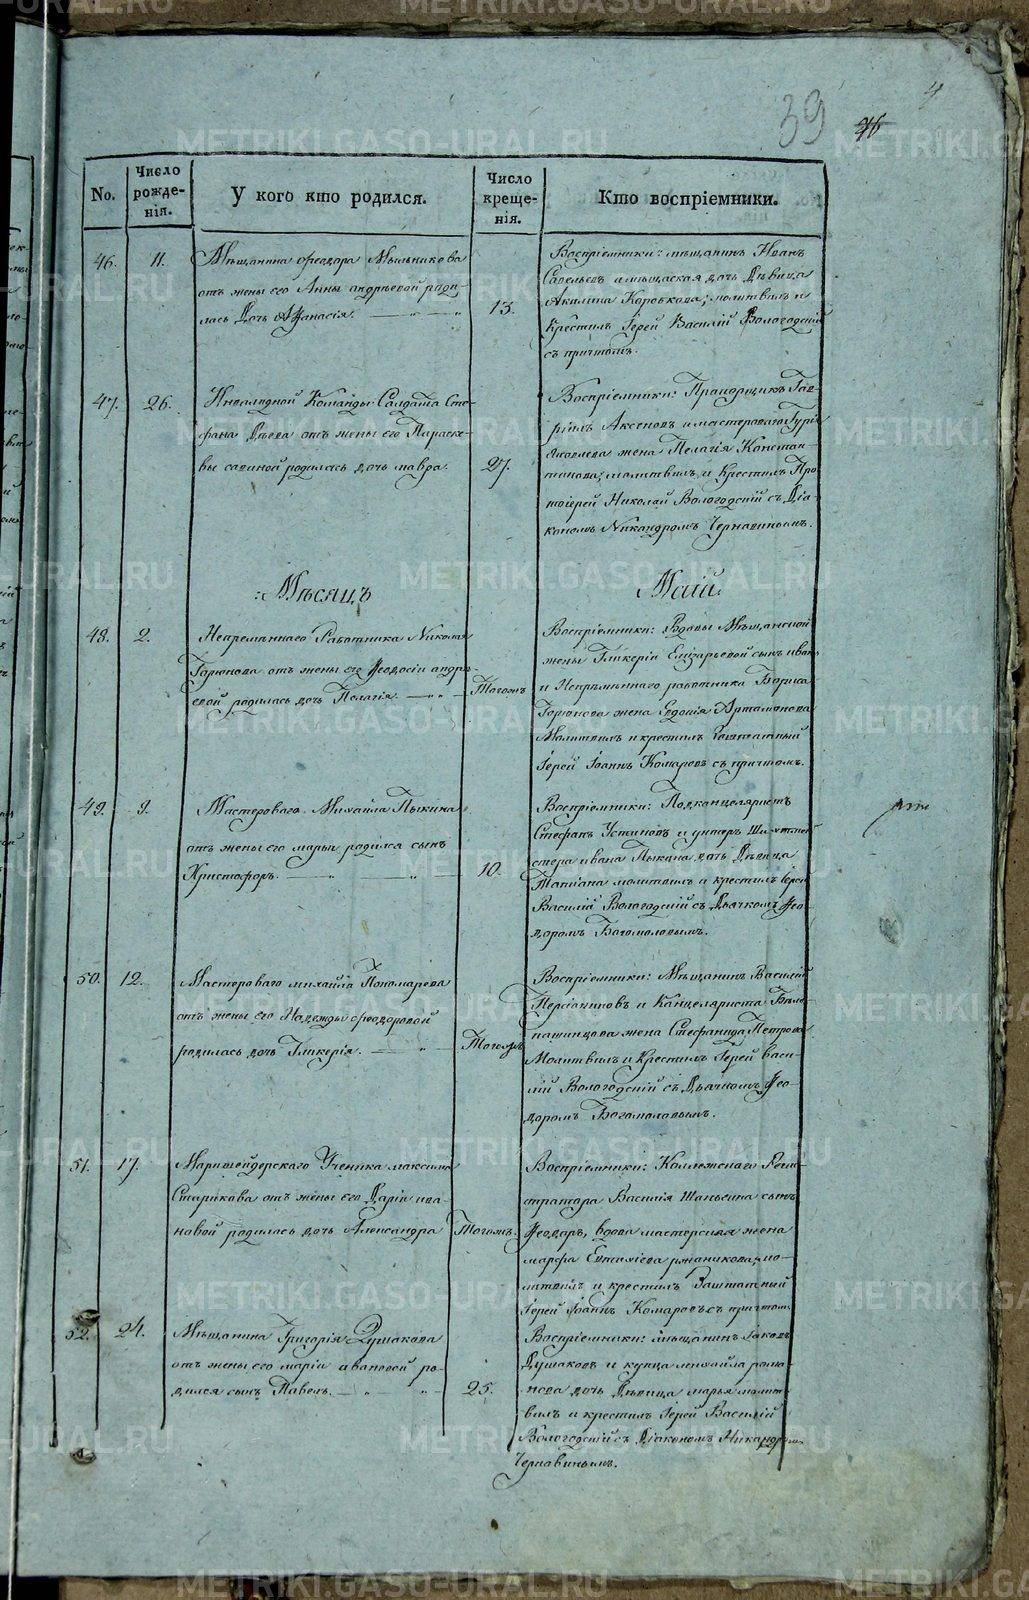 39
46
4
No.
Число рожде-нія.
У кого кто родился.
Число креще-нія.
Кто воспріемники.
46.
11.
Мѣщанина Ѳеодора Мыльникова
отъ жены его Анны андрѣевой роди-
лась Дочь Афанасія.
13.
Воспріемники: мѣщанинъ Иванъ
Савельевъ и мѣщаская дочь Дѣвица
Акилина Коровкова; молитвилъ и
Крестилъ Іерей Василій Вологодскій
съ причтомъ.
47.
26.
Инвалидной Команды Салдата Сте-
фана Деева отъ жены его Параске-
вы савиной родилась дочь мавра.
27.
Воспріемники: Прапорщикъ Гав-
рилъ Аксеновъ и мастероваго Гурія
Яковлева жена Пелагія Констан-
тинова; молитвилъ и Крестилъ Про-
тоіерей Николай Вологодскій съ Діа-
кономъ Никандромъ Чернавинымъ.
Мѣсяцъ
Маій
48.
2.
Непремѣннаго Работника Николая
Горюнова отъ жены его Ѳеодосіи андре-
евой родилась дочь Пелагія.
Тогожъ
Воспріемники: Вдовы Мѣщанской
жены Гликеріи Елизарьевой сынъ иванъ
и Непремѣннаго работника Бориса
Горюнова жена Евдокія Артамонова
Молитвилъ и крестилъ Заштатный
Іерей Іоаннъ Комаровъ съ причтомъ.
49.
9.
Мастероваго Михаила Пыкина
отъ жены его марьи родился сынъ
Христофоръ.
10.
Воспріемники: Подканцеляристъ
Стефанъ Устиновъ и унтеръ Шихтмей
стера ивана Пыкина дочь Дѣвица
Татіана молитвилъ и крестилъ Іерей
Василій Вологодскій съ Дьячкомъ Ѳео-
доромъ Богомоловымъ.
50.
12.
Мастероваго михаила Пономарева
отъ жены его Надежды Ѳеодоровой
родилась дочь Гликерія.
Тогожъ
Воспріемники: Мѣщанинъ Василій
и Канцеляриста Бѣло-
пашинцова жена Стефанида Петрова
Молитвилъ и Крестилъ Іерей васи-
лій Вологодскій съ Дьячкомъ Ѳео-
доромъ Богомоловымъ.
51.
17.
Маркшейдерскаго Ученика максима
Старикова отъ жены его Даріи ива-
новой родилась дочь Александра
Тогожъ.
Воспріемники: Коллежскаго Реги-
стратора Василія Шаньгина сынъ
Ѳеодоръ, вдова мастерская жена
марфа Евтихіева мо-
литвилъ и крестилъ Заштатный
Іерей Іоаннъ Комаровъ съ причтом.
52.
24.
Мѣщанина Григорія Душакова
отъ жены его маріи ро-
дился сынъ Павелъ.
25.
Воспріемники: мѣщанинъ Іаковъ
Душаковъ и купца михаила рома-
нова дочь Дѣвица марья молит-
вилъ и крестилъ Іерей Василій
Вологодскій съ Діакономъ Никандромъ
Чернавинымъ.
METRIKI.GASO-URAL.RU